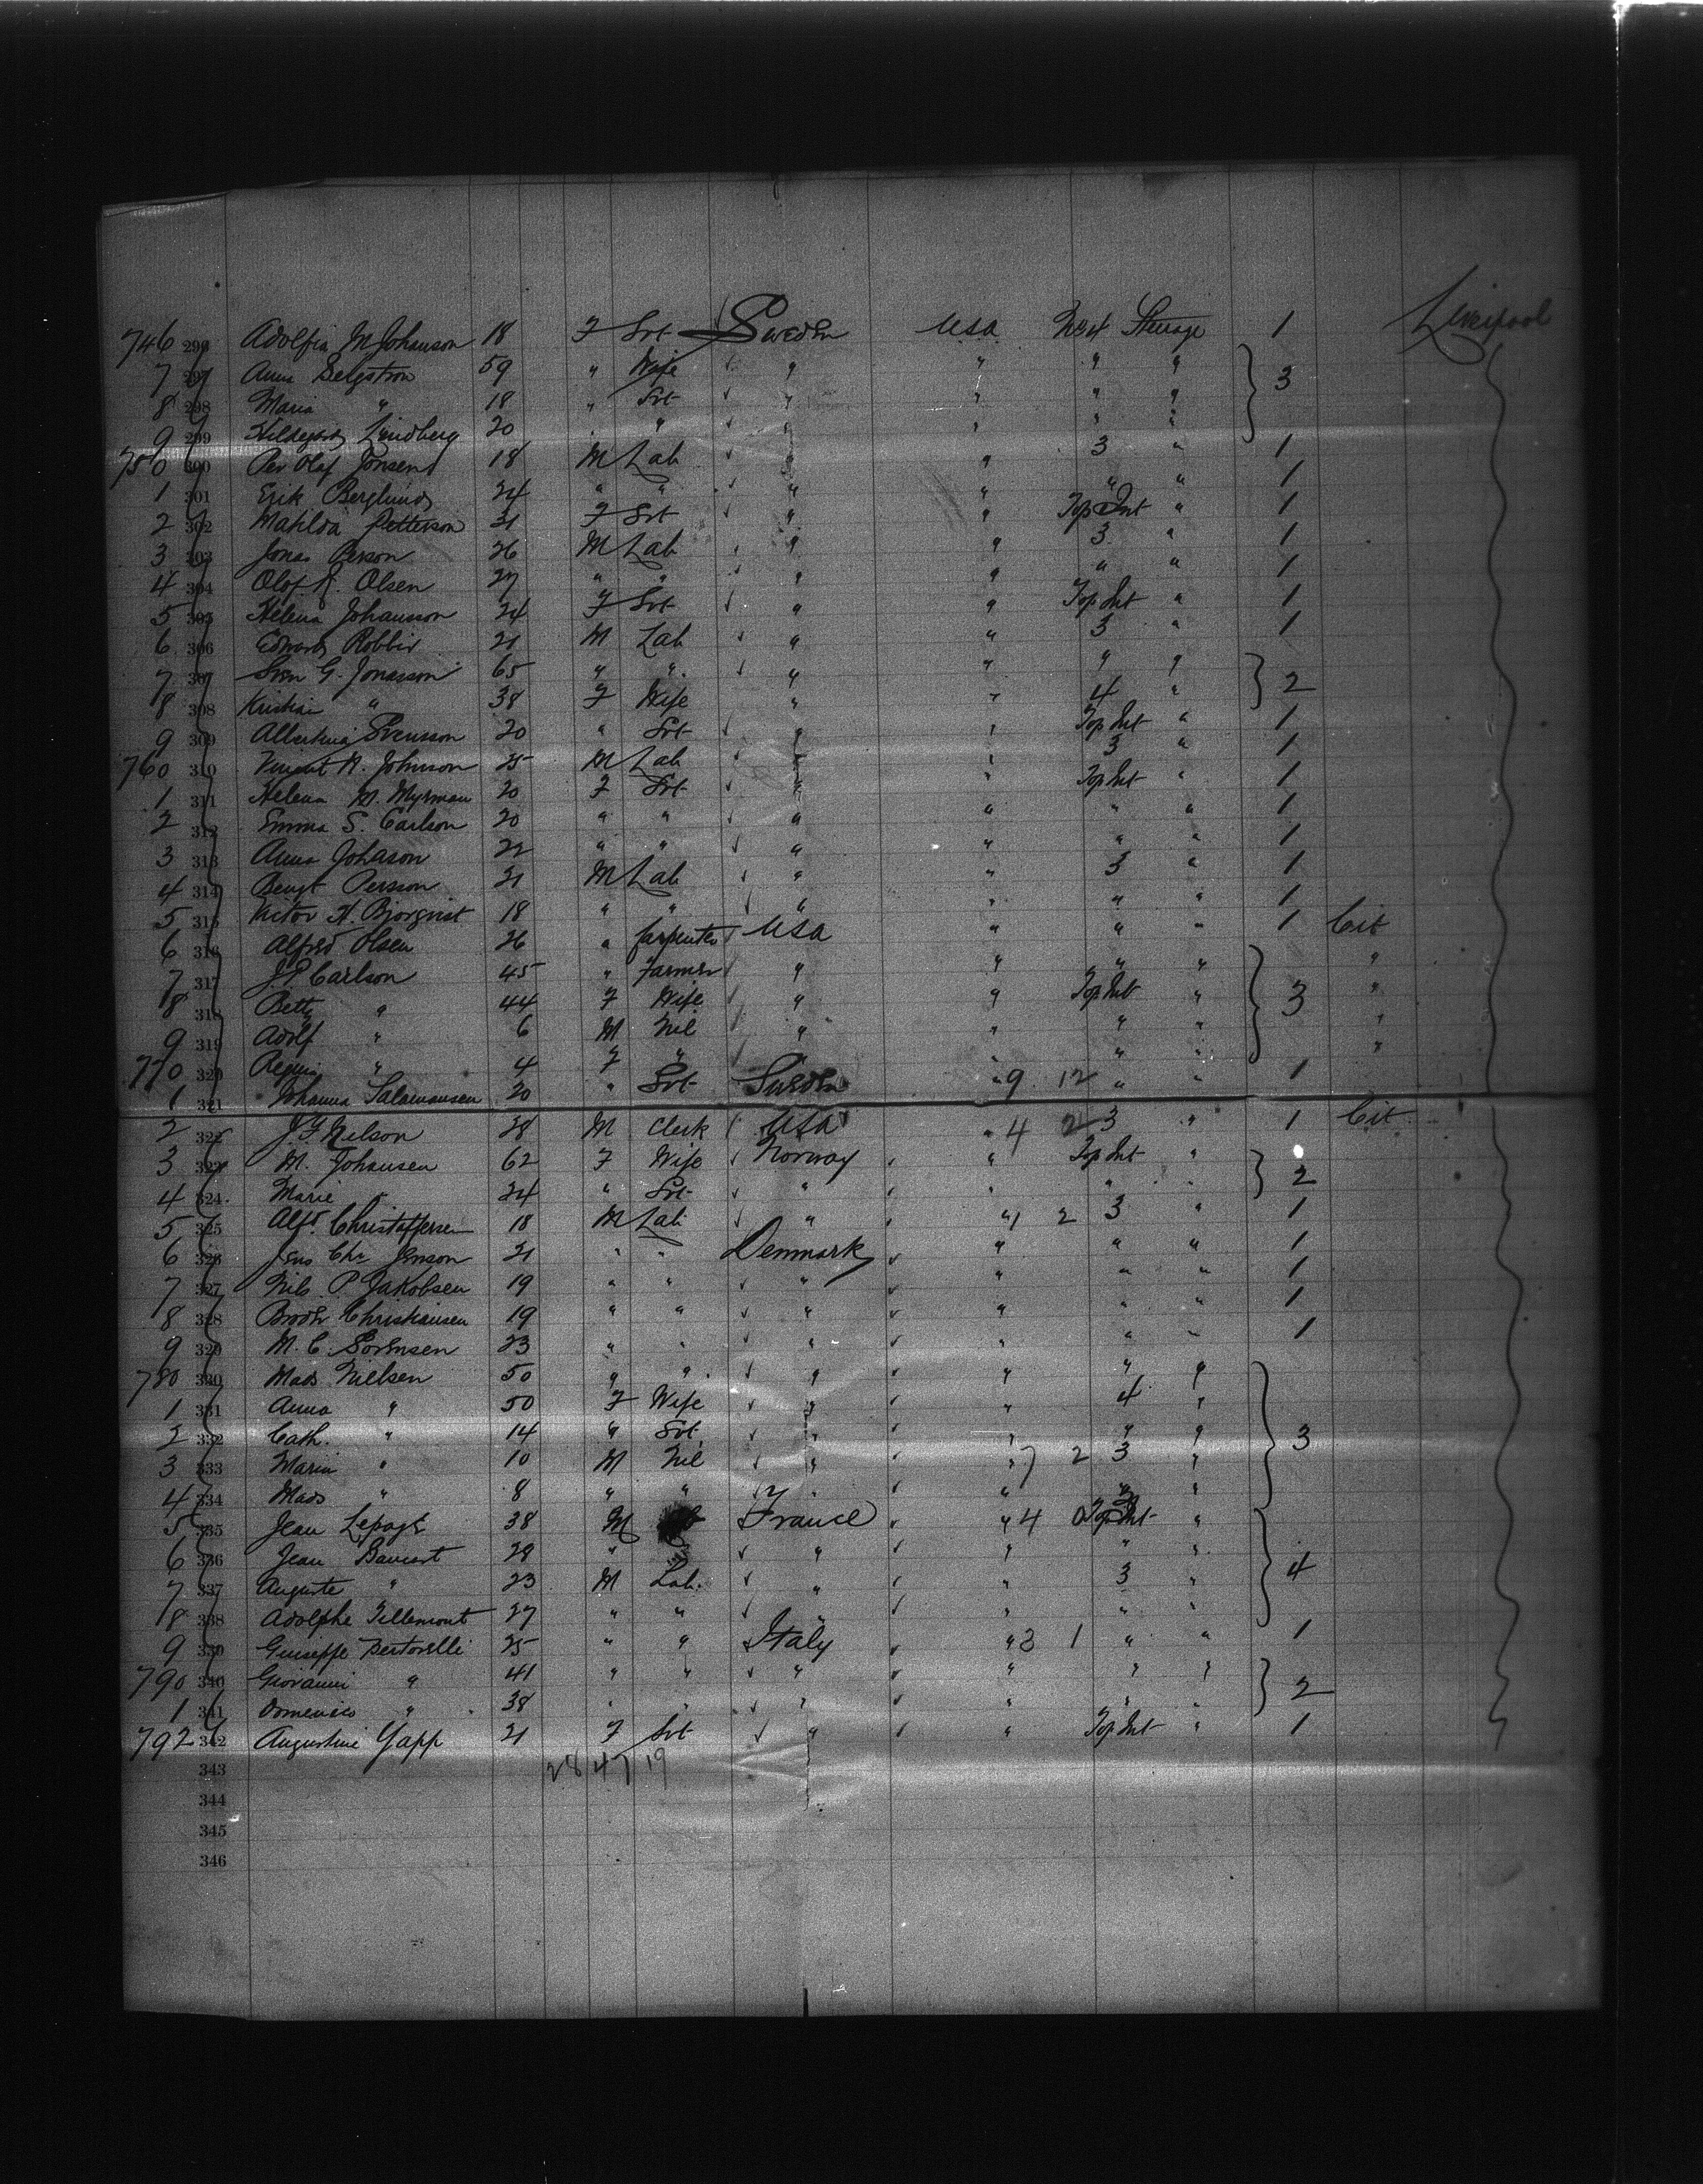 746 296 Adolfia M Johanson 18 F Svt Sweden USA No 4 Steerage 1 Liverpool
7 297 Anna Selgstron 59 " Wife " " " " 3
8 298 Maria " 18 " Svt " " " "
9 299 Hildegard Lindberg 20 " " " " " "
750 300 Per Olof Jonsen 18 M Lab " " 3 " 1
1 301 Erik Berglund 24 " " " " " " 1
2 302 Mahlda Petterson 31 F Svt " " Top Int " 1
3 303 Jonas Person 26 M Lab " " 3 " 1
4 304 Olof. R. Olsen 27 " " " " " " 1
5 305 Helena Johansson 24 F Svt " " Top Int " 1
6 306 Edward Robbis 21 M Lab " " 3 " 1
7 307 Sven G. Jonasson 65 " " " " " " 2
8 308 Kristian " 38 F Wife " " 4 "
9 309 Albertina Svensson 20 " Svt " " Top Int " 1
760 310 Vincent A. Johnson 25 M Lab " " 3 " 1
1 311 Helena M. Myrman 20 F Svt " " Top Int " 1
2 312 Emma S. Carlson 20 " " " " " " 1
3 313 Anna Johason 22 " " " " " " 1
4 314 Bengt Persson 21 M Lab " " 3 " 1
5 315 Victor H. Bjorqvist 18 " " " " " " 1
6 316 Alfred Olsen 26 " Carpenter USA " " " 1 Cit
7 317 J. P. Carlson 45 " Farmer " " " " 3 "
8 318 Betty " 44 F Wife " " Top Int " "
9 319 Adolf " 6 M Nil " " " " "
770 320 Regina " 4 F " " " " " "
1 321 Johanna Salamansen 20 " Svt Sweden " 9 12 " " 1
2 322 J. F. Nelson 28 M Clerk USA " 4 2 3 " 1 Cit
3 323 M. Johansen 62 F Wife Norway " Top Int " 2
4 324 Marie " 24 " Svt " " " "
5 325 Alfr. Christoffersen 18 M Lab " " 1 2 3 " 1
6 326 Jens Chr Jenson 21 " " Denmark " " " 1
7 327 Nils P. Jakobsen 19 " " " " " " 1
8 328 Broder Christiansen 19 " " " " " " 1
9 329 M. C. Sorensen 23 " " " " " " 1
780 330 Mads Nielsen 50 " " " " " " 3
1 331 Anna " 50 F Wife " " 4 "
2 332 Cath. " 14 " Svt " " " "
3 333 Marin " 10 M Nil " " 7 2 3 "
4 334 Mads " 8 " " " " " "
5 335 Jean Lepage 38 M France " 4 0 Top Int " 4
6 336 Jean Bancart 28 " " " " "
7 337 Auguste " 23 M Lab. " " 3 "
8 338 Adolphe Tillemont 27 " " " " " "
9 339 Giuseppe Bertorelli 25 " " Italy " 3 1 " " 1
790 340 Giovanni " 41 " " " " " " 2
1 341 Domenico " 38 " " " " " "
792 342 Augustine Yapp 21 F Svt " " Top Int " 1
343 28 47 19
344
345
346